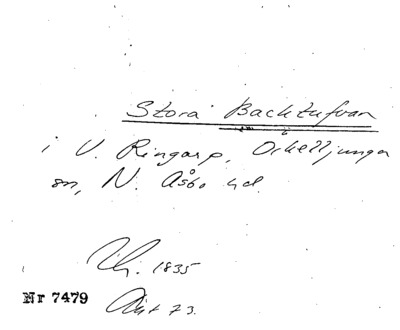 Stora Backtufvan
i V. Ringarp, Örkelljunga
sn, N. Åsbo hd.
Uh. 1835
Nr 7479
Akt 73.